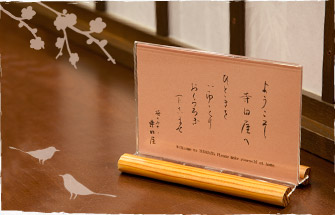 ようこそ
寺田屋へ
ひとときを
ごゆっくり
おくつろぎ
下さいませ
Welcome to TERADAYA Please make yourself at home.